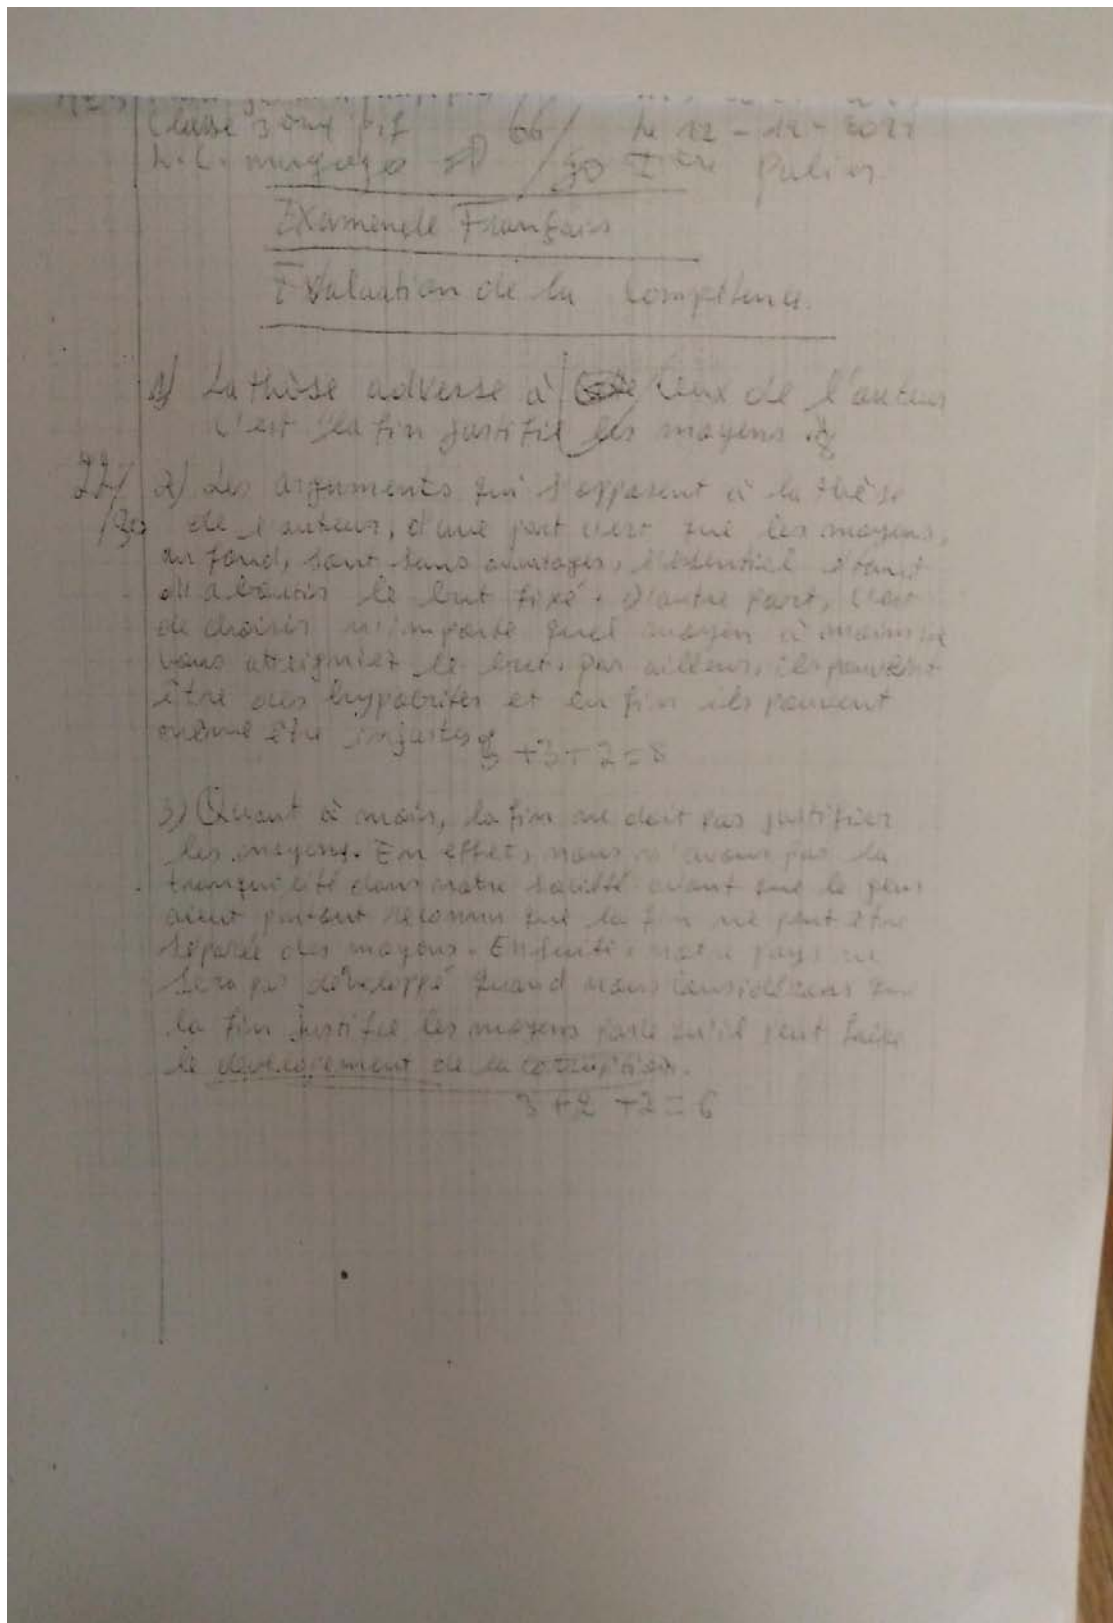 Classe 3 66/ le 12 - 12 - 2021
50 Ière Palier
Examen de Français
Evaluation de la compétence.
1) La thèse adverse à ceux de l'auteur
c'est la fin justifie les moyens. 8
22/ 2) Les arguments qui s'opposent à la thèse
de l'auteur, d'une part c'est que les moyens,
au fond, sont sans avantages, l'essentiel étant
d'aboutir le but fixé. D'autre part, c'est
de choisir n'importe quel moyen à moins que
vous atteigniez le but. Par ailleurs, ils peuvent
être des hypocrites et en fin ils peuvent
même être injustes.
3 + 3 + 2 = 8
3) Quant à mois, la fin ne doit pas justifier
les moyens. En effet, nous n'avons pas la
dans notre société avant que le gens
aient reconnu que la fin ne peut être
séparée des moyens. Ensuite, notre pays ne
sera pas développé quand nous considérons que
la fin justifie les moyens parce qu'il peut faire
le developement de la corruption.
3 + 2 + 2 = 6